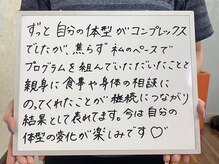 ずっと自分の体型がコンプレックス
でしたが、焦らず私のペースで
プログラムを組んでいただいたことで
親身に食事や身体の相談に
のってくれたことが継続につながり
結果として表れてます。今は自分の
体型の変化が楽しみです♡